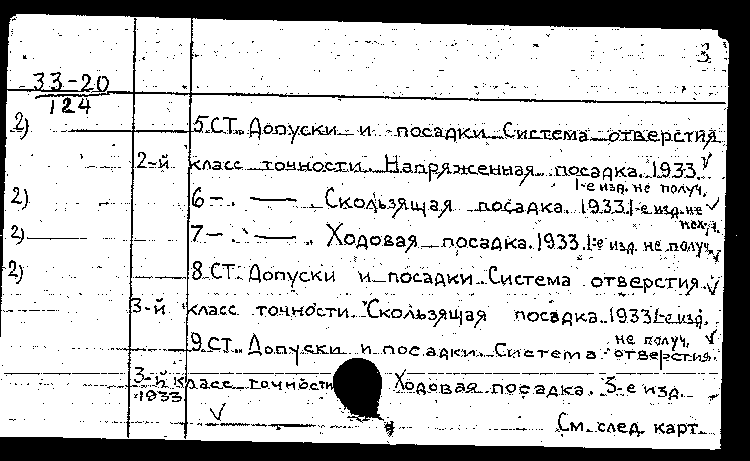 3
33-20
124
2) 5.СТ. Допуски и посадки Система отверстия
2-й класс точности. Напряженная посадка. 1933
1-е изд. не получ.
2) 6 — . —— . Скользящая посадка. 1933. 1-е изд. не
2) 7 — . —— . Ходовая посадка. 1933. 1-е изд. не получ.
2) 8.СТ. Допуски и посадки Система отверстия
3-й класс точности. Скользящая посадка. 1933 1-е изд.
не получ.
9.СТ. Допуски и посадки. Система отверстия.
3-й класс точности Ходовая посадка. 3-е изд.
1933
См. след. карт.